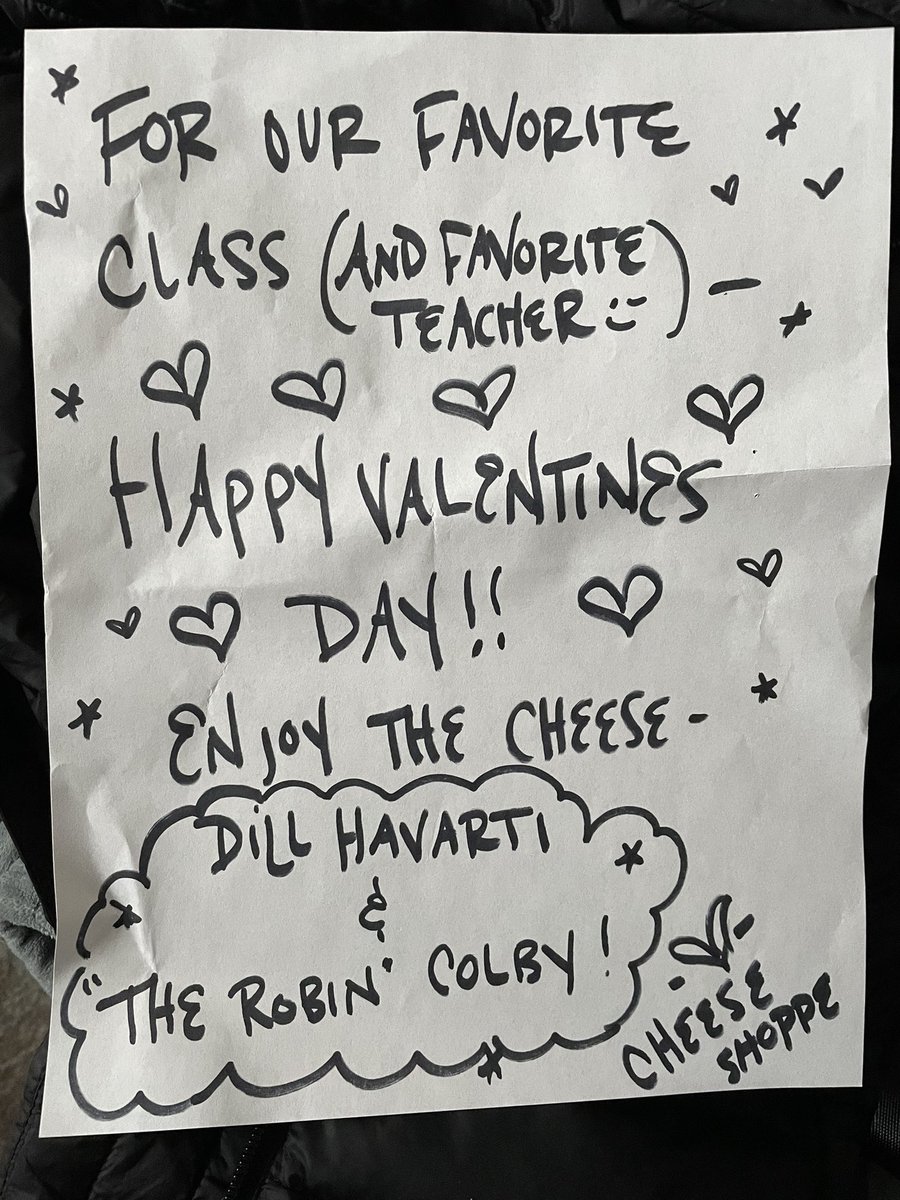 FOR OUR FAVORITE
CLASS (AND FAVORITE
TEACHER :)) —
HAPPY VALENTINES
DAY!!
ENJOY THE CHEESE-
DILL HAVARTI
&
"THE ROBIN" COLBY!
- ♡ -
CHEESE
SHOPPE